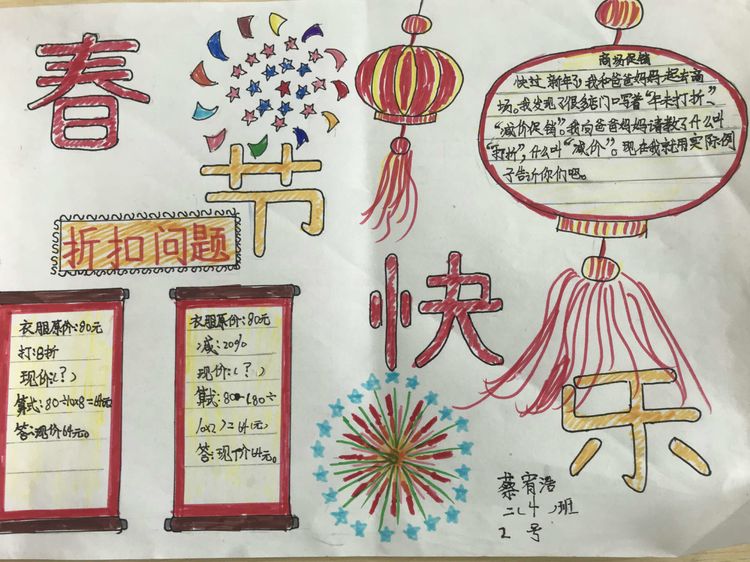 春
节
快
乐
商场促销
快过新年了,我和爸爸妈妈一起去商
场。我发现了很多店门口写着“年末打折”、
“减价促销”。我向爸爸妈妈请教了什么叫
“打折”,什么叫“减价”。现在我就用实际例
子告诉你们吧。
折扣问题
衣服原价:80元
打:8折
现价:(?)
算式:80÷10×8=64元
答:现价64元。
衣服原价:80元
减:20%
现价:(?)
算式:80-(80÷
10×2)=64(元)
答:现价64元。
蔡宥浩
二(4)班
2号